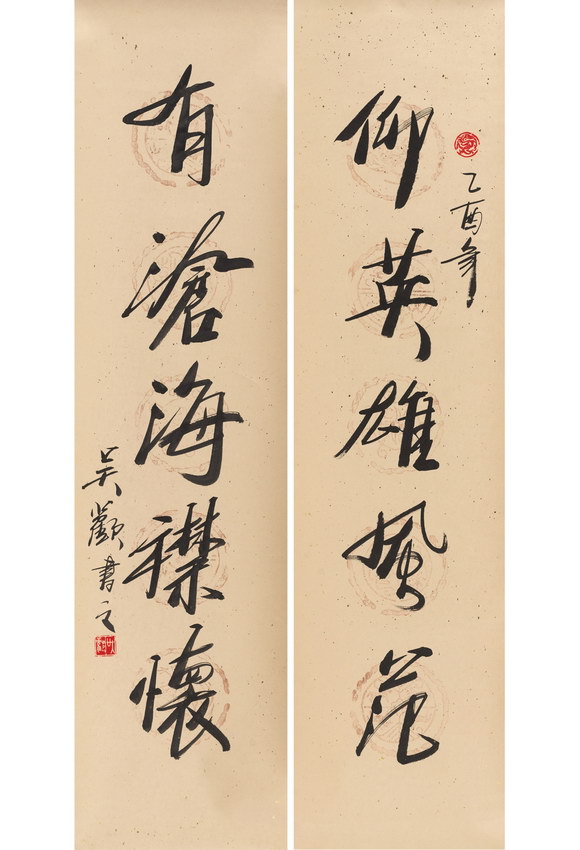 乙酉年
仰英雄風范
有滄海襟懷
吴歡書之